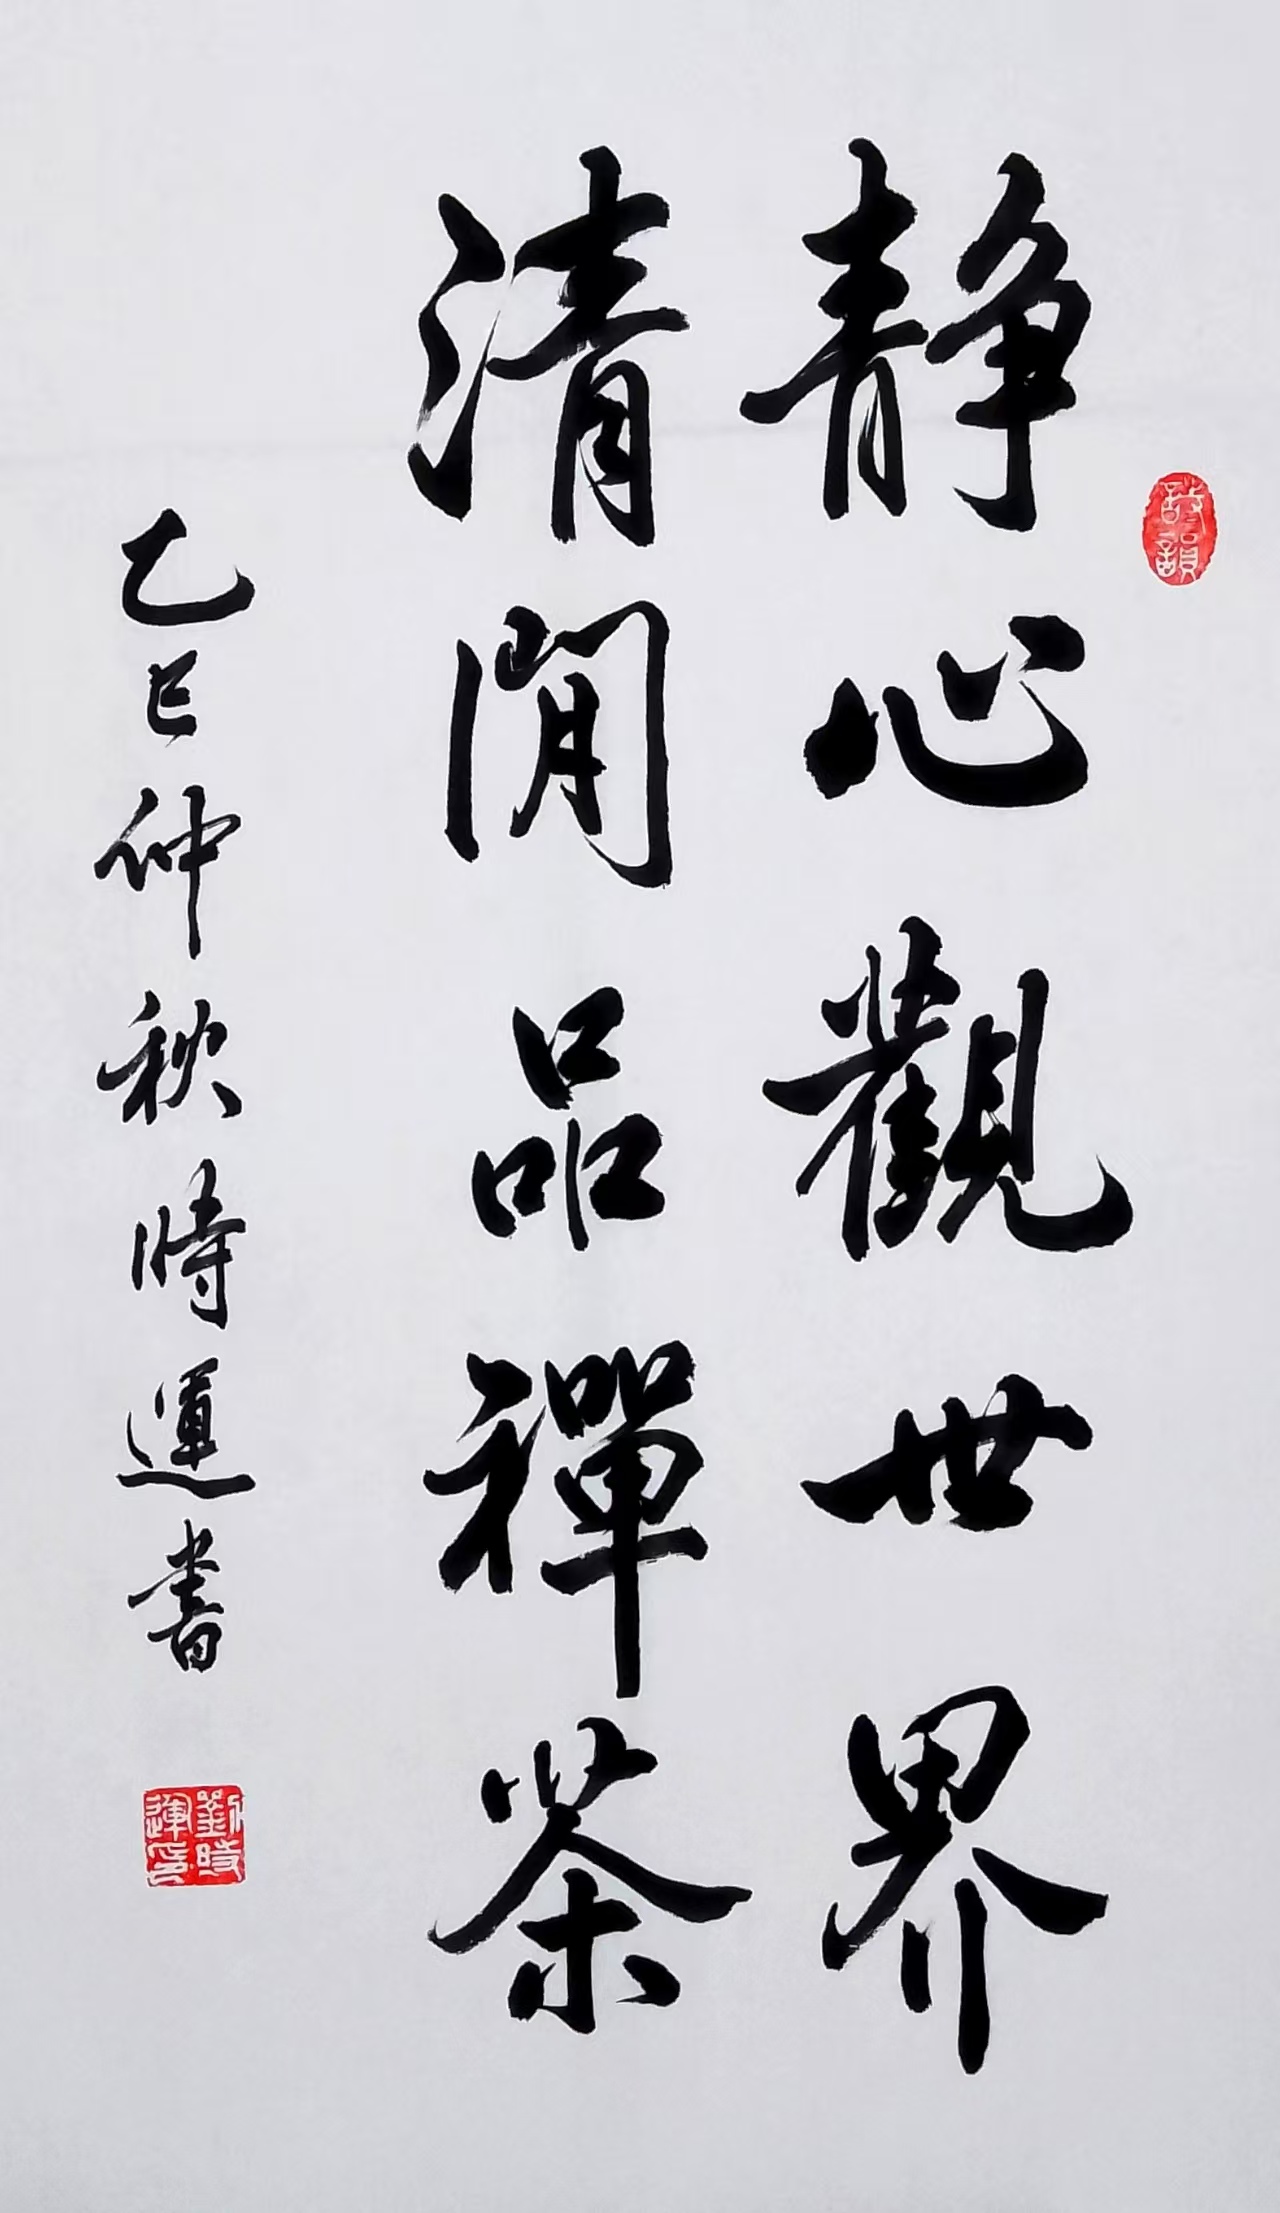 静心觀世界
清閒品禪茶
乙巳仲秋時運書
劉時運印